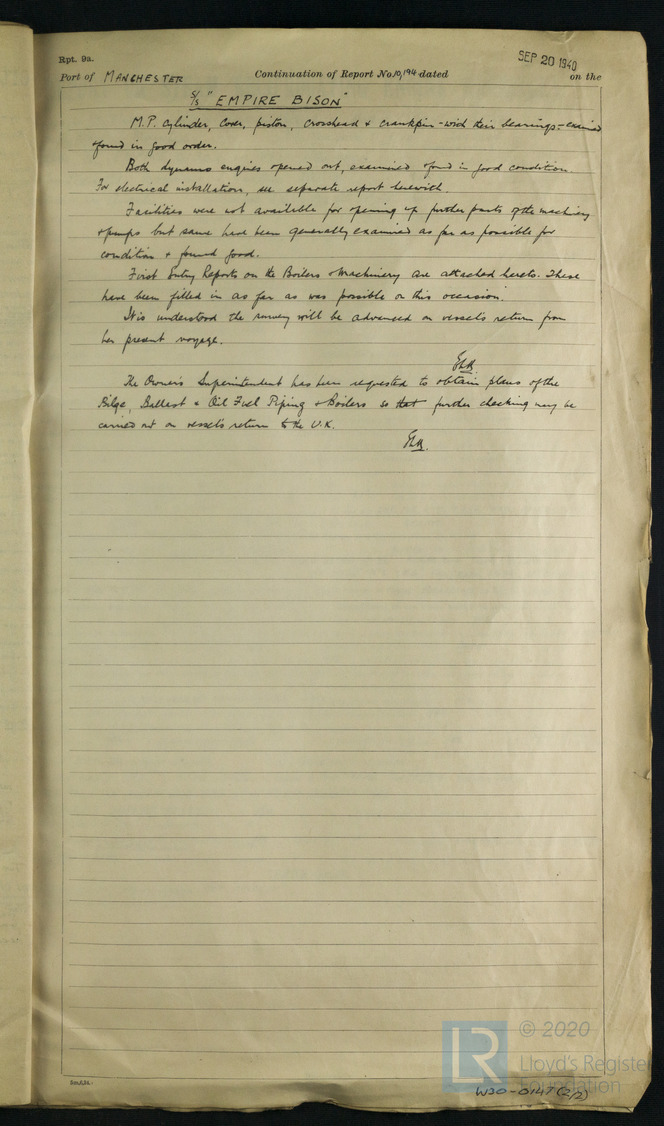 Rpt. 9a.
SEP 20 1940
Port of MANCHESTER Continuation of Report No 10,194 dated on the
S/S "EMPIRE BISON"
M.P. cylinder, cover, piston, crosshead & crankpin - with their bearings - examined
& found in good order.
Both dynamo engines opened out, examined & found in good condition.
For electrical installation, see separate report herewith.
Facilities were not available for opening up further parts of the machinery
& pumps but same had been generally examined as far as possible for
condition & found good.
First Entry Reports on the Boilers & Machinery are attached hereto. These
have been filled in as far as was possible on this occasion.
It is understood the survey will be advanced on vessels return from
her present voyage.
The Owners Superintendent has been requested to obtain plans of the
Bilge, Ballast & Oil Fuel Piping & Boilers so that further checking may be
carried out on vessels return to the U.K.
LR © 2020
Lloyd's Register
Foundation
W30-0147 (2/2)